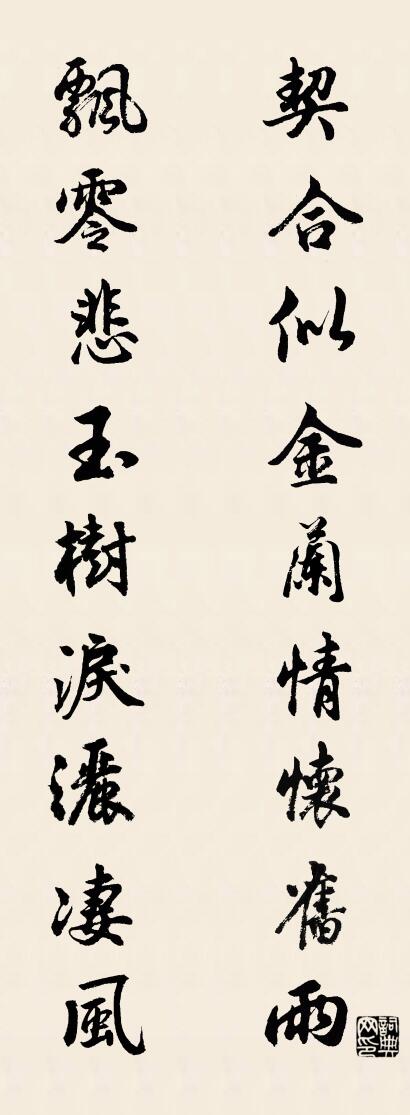 契合似金蘭情懷舊雨
飄零悲玉樹淚灑凄風
詞典网印